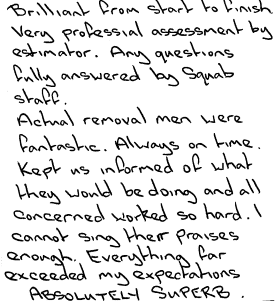 Brilliant from start to finish
Very professial assessment by
estimator. Any questions
fully answered by Squab
staff.
Actual removal men were
fantastic. Always on time.
Kept us informed of what
they would be doing and all
concerned worked so hard. I
cannot sing their praises
enough. Everything far
exceeded my expectations
ABSOLUTELY SUPERB.